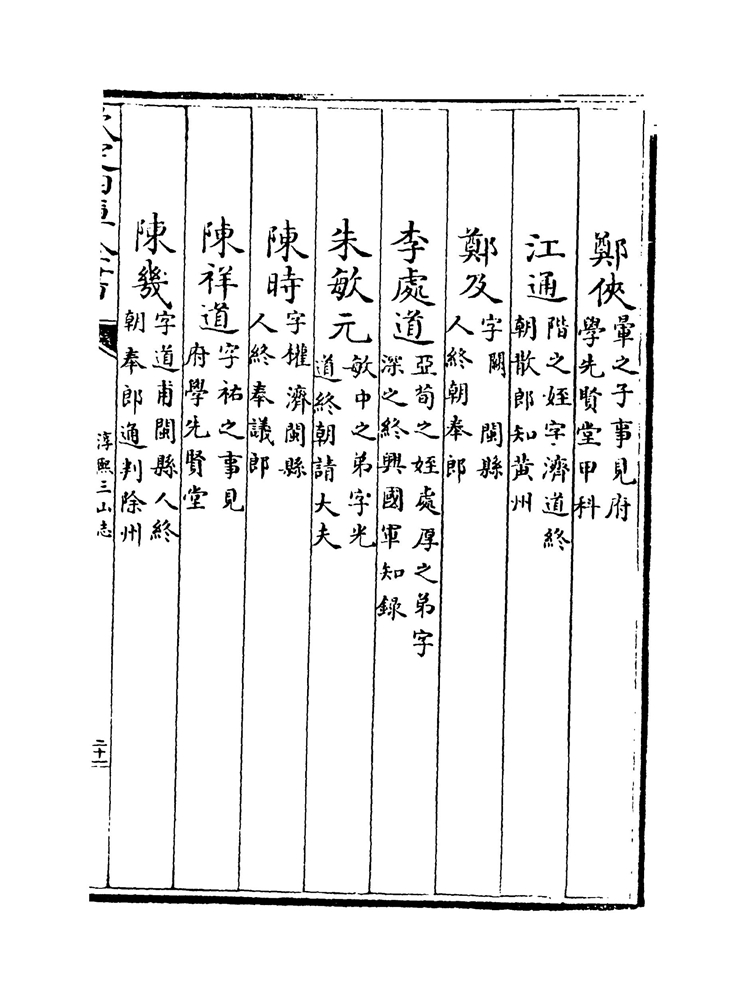 鄭俠暈之子事見府
學先賢堂甲科
江通階之姪字濟道終
朝散郎知黃州
鄭及字闕 閩縣
人終朝奉郎
李處道亞荀之姪處厚之弟字
深之終興國軍知錄
朱敏元敏中之弟字光
道終朝請大夫
陳時字權濟閩縣
人終奉議郎
陳祥道字祐之事見
府學先賢堂
陳幾字道甫閩縣人終
朝奉郎通判除州
淳熙三山志
二十一